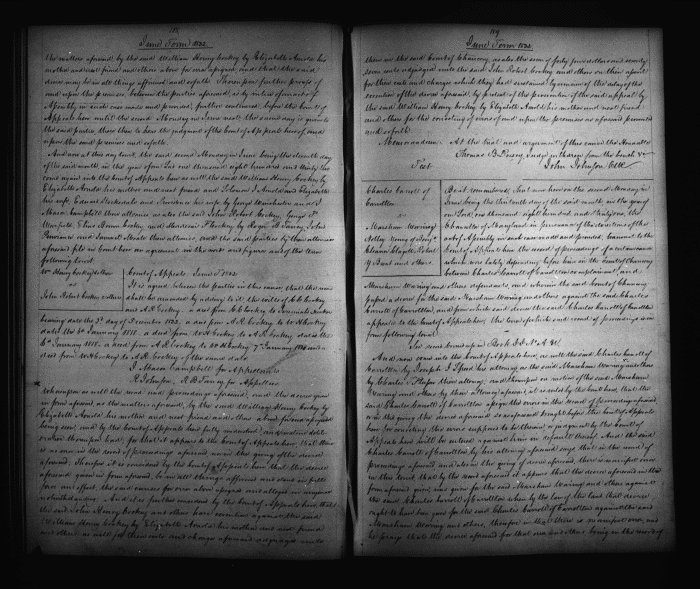 June Term 1832.
the matters aforesaid by the said William Henry Cockey by Elizabeth Arnold his
mother and next friend and others above for an appeal and that the said
decree may be in all things affirmed and so forth. Thereupon further process of
and upon the premises between the parties aforesaid is by virtue of an act of
Assembly in such case made and provided, further continued before the Court of
Appeals here until the second Monday in June next, the same day is given to
the said parties, then there to hear the judgment of the Court of Appeals hereof and
upon the said premises and so forth.
And now at this day to wit, the said second Monday in June being the eleventh day
of the said month, in the year of our Lord one thousand eight hundred and thirty two
come again into the Court of Appeals here as well the said William Henry Cockey by
Elizabeth Arnold his mother and next friend and Solomon Arnold and Elizabeth
his wife, Edward Stocksdale and Prudence his wife by George Winchester and J
Mason Campbell their attornies as also the said John Robert Cockey, George F.
Warfield, Elias Brown Cockey and Mordecai G Cockey by Roger B. Taney John
and Samuel their attornies, and the said parties by their attornies
aforesaid file in Court here an agreement in the words and figures and of the tenor
following to wit.
Wm Henry Cockey & others
vs
John Robert Cockey & others
Court of Appeals June T. 1832
It is agreed between the parties in this cause, that the record
shall be amended by adding to it the wills of
and A R Cockey. a deed from
bearing date the 3d day of December 1823, a deed from A R Cockey to Wm H Cockey
dated the 6th January 1818, a deed from Wm H Cockey to A R Cockey dated the
6th January 1818, a deed from A R Cockey to Wm H Cockey 7th January 1818 and a
deed from Wm H Cockey to A R Cockey of the same date
J Mason Campbell for Appellants
R Johnson, R B Taney for Appellees
Whereupon as well the record and proceedings aforesaid, and the decree given
in form aforesaid, as the matters aforesaid, by the said William Henry Cockey by
Elizabeth Arnold his mother and next friend and others above for an appeal
being seen, and by the Court of Appeals here fully understood, and mature delib
eration thereupon had, for that it appears to the Court of Appeals here, that there
is no error in the record of proceedings aforesaid nor in the giving of the decree
aforesaid. Therefore it is considered by the Court of Appeals here, that the decree
aforesaid given in form aforesaid, be in all things affirmed and stand in full
force and effect the said causes for error above assigned and alleged in anywise
notwithstanding. And it is further considered by the Court of Appeals here, that
the said John Henry Cockey and others have recover against the said
William Henry Cockey by Elizabeth Arnold his mother and next friend
and others as well for their costs and charges aforesaid adjudged unto
June Term 1832
them in the said Court of Chancery, as also the sum of forty four dollars and seventy
seven cents adjudged unto the said John Robert Cockey and others on their assent
for their costs and charges which they had sustained by reason of the delay of the
execution of the decree aforesaid by pretext of the prosecution of the said appeal by
the said William Henry Cockey by Elizabeth Arnold his mother and next friend
and others for the correcting of error of and upon the premises as aforesaid prosecuted
and so forth.
Memorandum. At the trial and argument of this cause the Honorable
Thomas B. Dorsey Judge withdrew from the bench &c
Test
John Johnson Clk
Charles Carroll of
Carrollton
vs
Marsham Waring &
others
Be it remembered, That now here on the second Monday in
June being the eleventh day of the said month in the year of
our Lord, one thousand eight hundred and thirty two, the
Chancellor of Maryland in pursuance of the directions of the
act of Assembly in such case made and provided, transmits to the
Court of Appeals here the record of proceedings of a certain cause
which was lately depending before him in the Court of Chancery
between Charles Carroll of Carrollton complainant, and
Marsham Waring and others defendants, and wherein the said Court of Chancery
passed a decree for the said Marsham Waring and others against the said Charles
Carroll of Carrollton, and from which said decree the said Charles Carroll of Carrollton
appealed to the Court of Appeals here. The tenor of which said record of proceedings is in
form following to wit.
See record
And now come into the Court of Appeals here, as well the said Charles Carroll of
Carrollton by Joseph I Speed his attorney, as the said Marsham Waring and others
by Charles their attorney, and thereupon on motion of the said Marsham
Waring and others by their attorney aforesaid, it is ruled by the Court here, that the
said Charles Carroll of Carrollton assign the errors in the record of proceedings aforesaid
or in the giving the decree aforesaid so as aforesaid brought before the Court of Appeals
here for correcting the errors supposed to be therein, or judgment by the Court of
Appeals here will be entered against him on default thereof. And the said
Charles Carroll of Carrollton by his attorney aforesaid says that in the record of
proceedings aforesaid, and also in the giving of decree aforesaid, there is manifest error
in this to wit, that by the record aforesaid, it appears that the decree aforesaid in the
form aforesaid given was given for the said Marsham Waring and others against
the said Charles Carroll of Carrollton when by the law of the land that decree
ought to have been given for the said Charles Carroll of Carrollton against the said
Marsham Waring and others, therefore in that there is manifest error and
he prays that the decree aforesaid for that error and others being in the record of